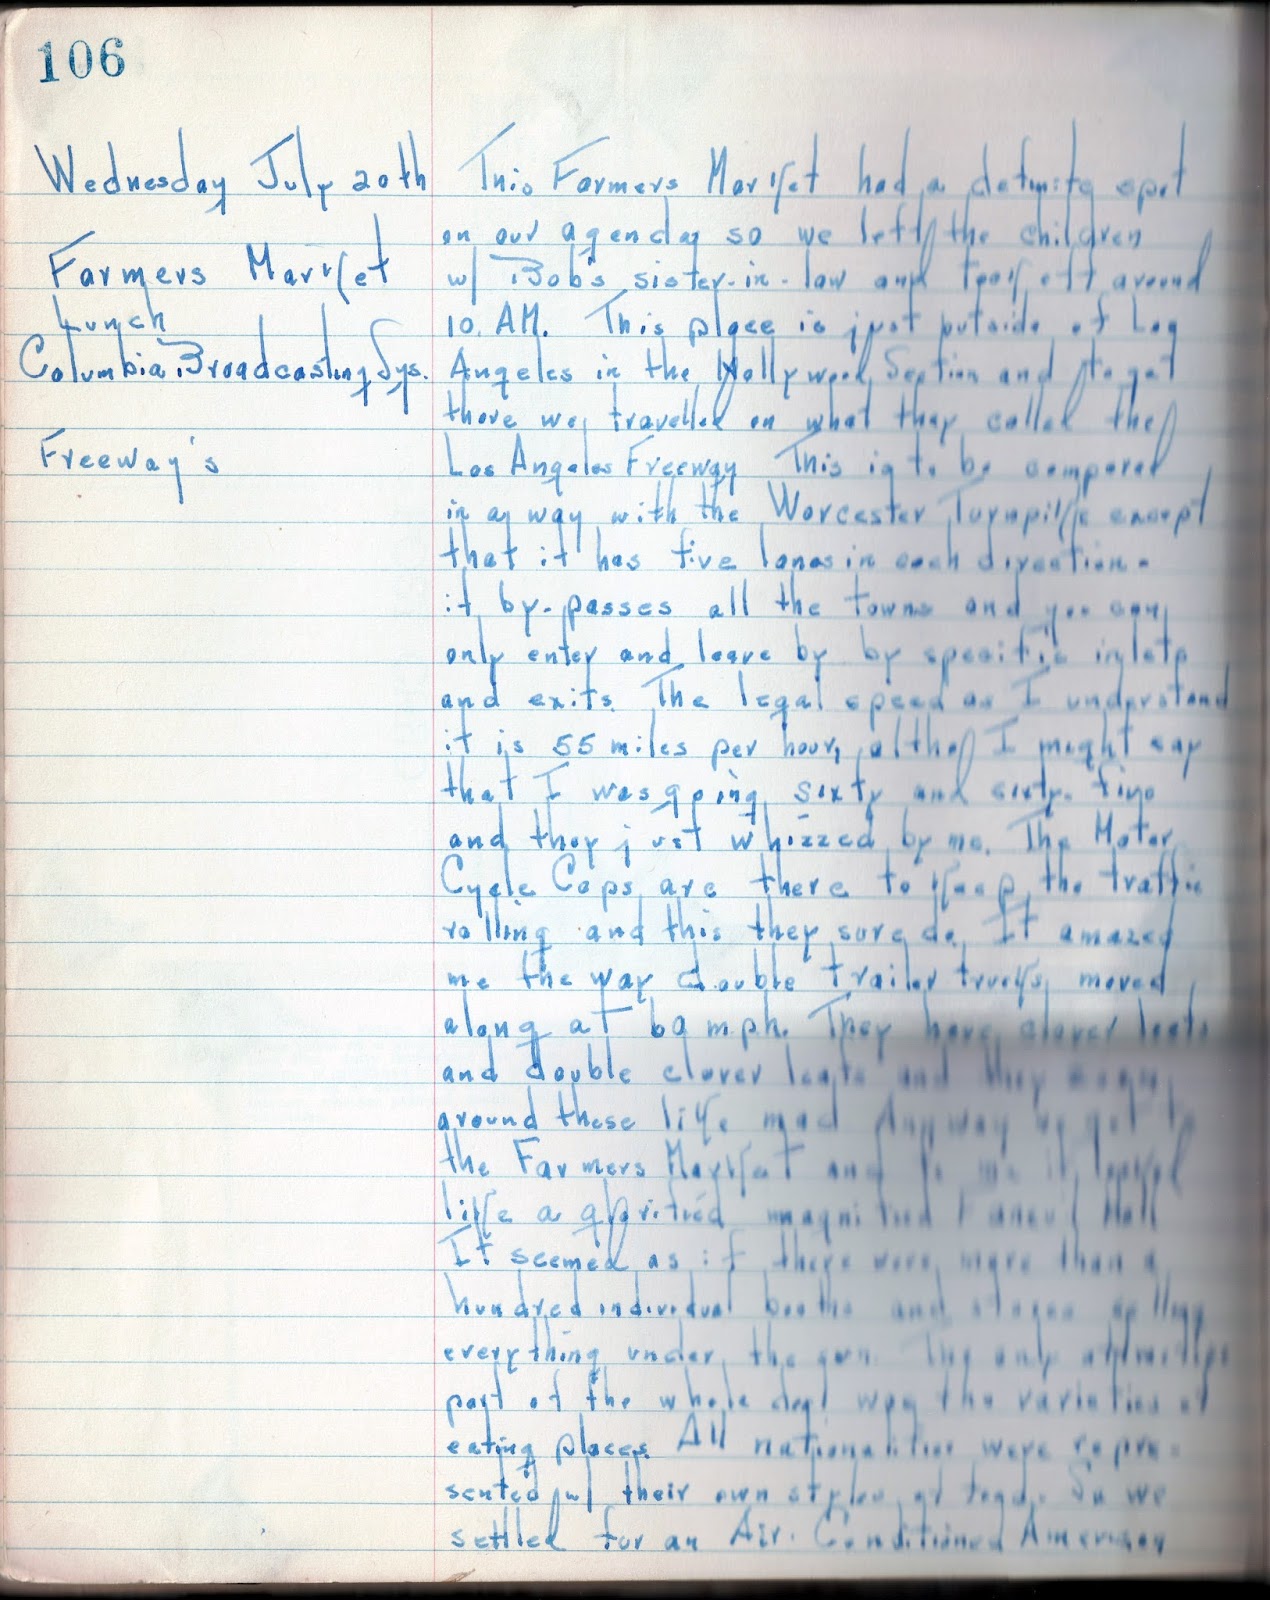 106
Wednesday July 20th
Farmers Market
Lunch
Columbia Broadcasting Sys.
Freeway's
This Farmers Market had a definite spot
on our agenda so we left the children
w/ Bob's sister-in-law and took off around
10. AM. This place is just outside of Los
Angeles in the Hollywood Section and to get
there we travelled on what they called the
Los Angeles Freeway This is to be compared
in a way with the Worcester Turnpike except
that it has five lanes in each direction -
it by-passes all the towns and you can
only enter and leave by by specific inlets
and exits. The legal speed as I understand
it is 55 miles per hour, altho I might say
that I was going sixty and sixty-five
and they just whizzed by me. The Motor
Cycle Cops are there to keep the traffic
rolling and this they sure do. It amazed
me the way double trailer trucks moved
along at 60 m.p.h. They have clover leafs
and double clover leafs and they
around these like mad Anyway we got to
the Farmers Market and to me it looked
like a glorified magnified Faneuil Hall
It seemed as if there were more than a
hundred individual booths and stores selling
everything under the sun. The only attractive
part of the whole deal was the varieties of
eating places. All nationalities were repre-
sented w/ their own styles of food. So we
settled for an Air-Conditioned American